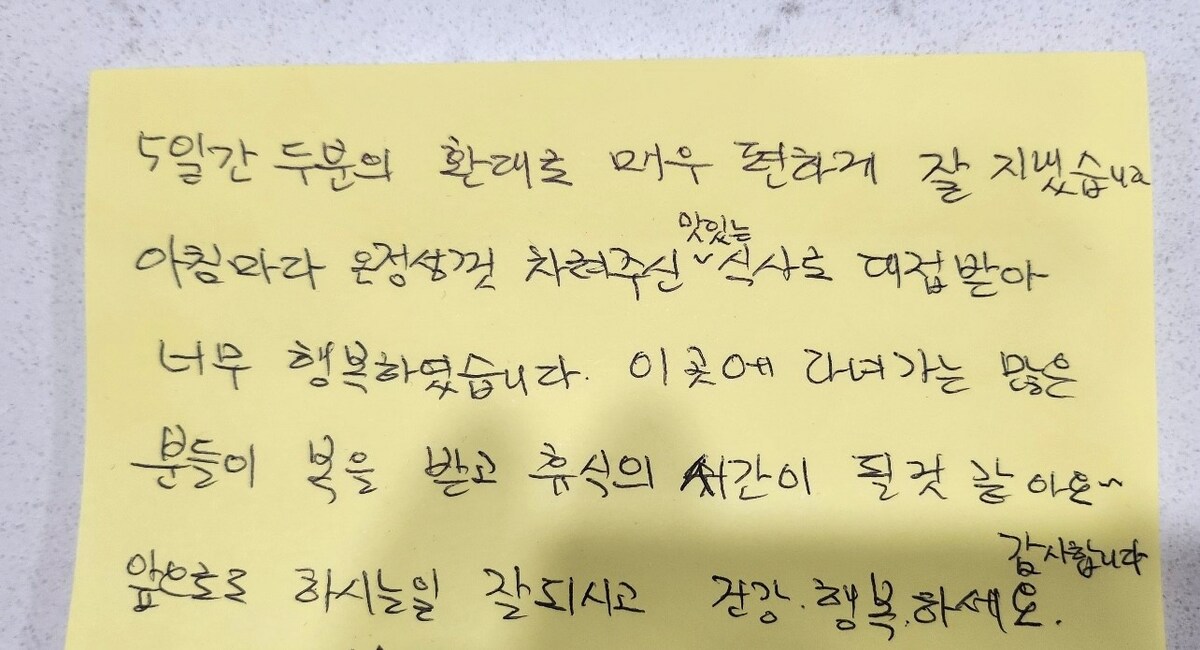 5일간 두분의 환대로 매우 편하게 잘 지냈습니다
아침마다 온정성껏 차려주신 맛있는 식사로 대접받아
너무 행복하였습니다. 이곳에 다녀가는 많은
분들이 복을 받고 휴식의 시간이 될것 같아요~
앞으로 하시는일 잘되시고 건강.행복.하세요.
감사합니다